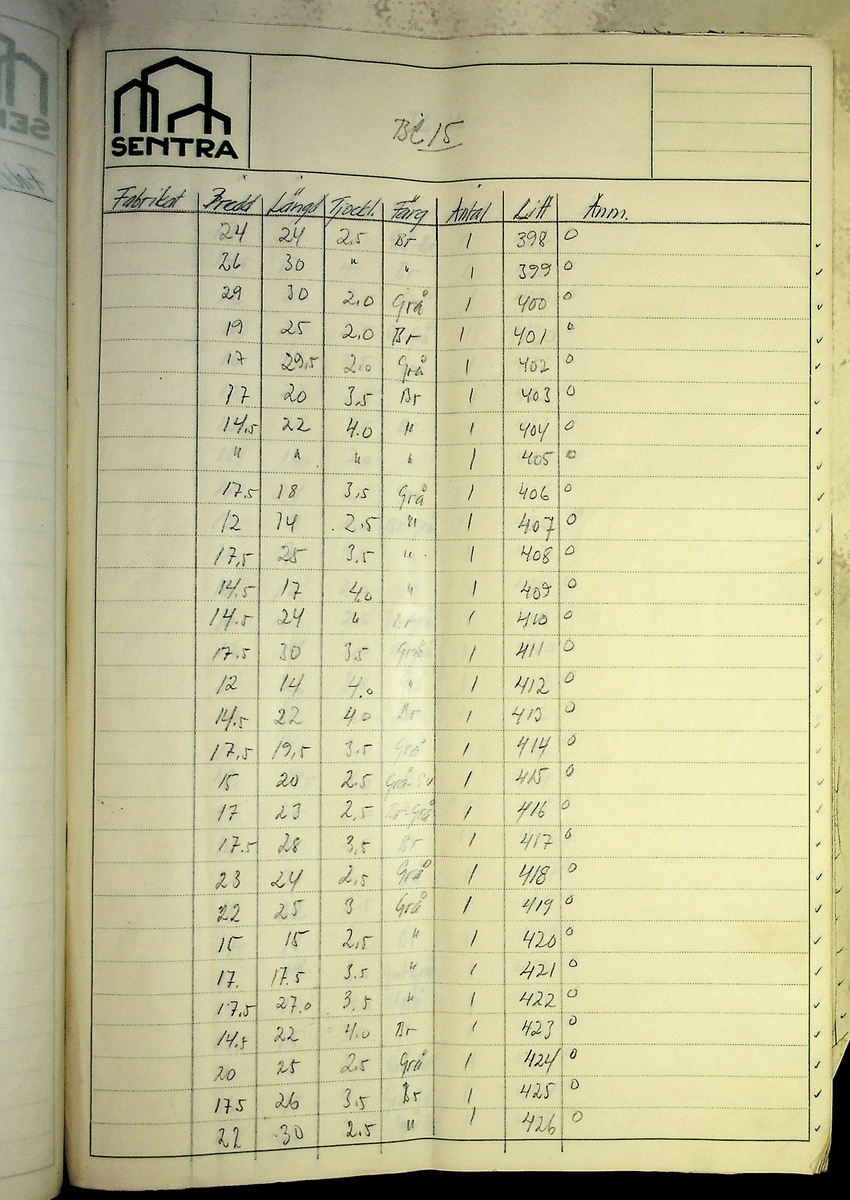 SENTRA
Bl 15
Fabrikat Bredd Längd Tjockl. Färg Antal Litt Anm.
24 24 2.5 Br 1 398 0
26 30 " " 1 399 0
29 30 2.0 Grå 1 400 0
19 25 2.0 Br 1 401 0
17 29.5 2.0 Grå 1 402 0
37 20 3.5 Br 1 403 0
14.5 22 4.0 " 1 404 0
" " " " 1 405 0
17.5 18 3.5 Grå 1 406 0
12 14 2.5 " 1 407 0
17.5 25 3.5 " 1 408 0
14.5 17 4.0 " 1 409 0
14.5 24 " Br 1 410 0
17.5 30 3.5 Grå 1 411 0
12 14 4.0 " 1 412 0
14.5 22 4.0 Br 1 413 0
17.5 19.5 3.5 Grå 1 414 0
15 20 2.5 1 415 0
17 23 2.5 Br-Grå 1 416 0
17.5 28 3.5 Br 1 417 0
23 24 2.5 Grå 1 418 0
22 25 3 Grå 1 419 0
15 15 2.5 " 1 420 0
17. 17.5 3.5 " 1 421 0
17.5 27.0 3.5 " 1 422 0
14.5 22 4.0 Br 1 423 0
20 25 2.5 Grå 1 424 0
17.5 26 3.5 Br 1 425 0
22 30 2.5 " 1 426 0